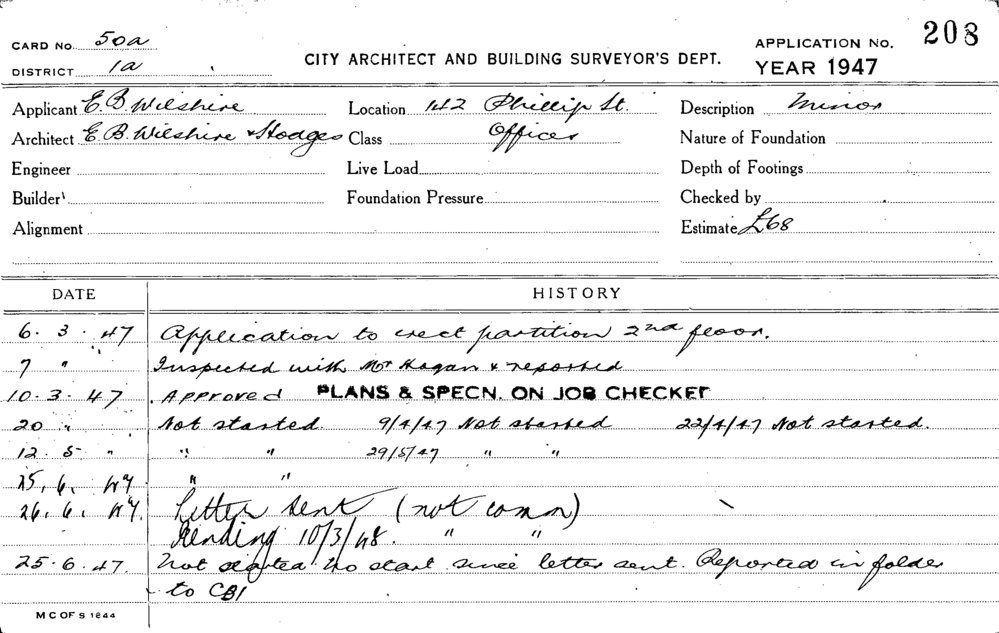 CARD No. 50a
DISTRICT 1a
CITY ARCHITECT AND BUILDING SURVEYOR'S DEPT.
APPLICATION No. 208
YEAR 1947
Applicant E. B. Wilshire Location 142 Phillip St. Description Minor
Architect E. B. Wilshire & Hodges Class Offices Nature of Foundation
Engineer Live Load Depth of Footings
Builder Foundation Pressure Checked by
Alignment Estimate £68
DATE HISTORY
6. 3. 47 Application to erect partition 2nd floor.
7 " Inspected with Mr Hagan & reported
10. 3. 47 Approved PLANS & SPECN. ON JOB CHECKET
20 " Not started. 9/4/47 Not started 22/4/47 Not started.
12. 5 " " " 29/5/47 " "
25. 6. 47 " "
26. 6. 47. Letter sent (not comm)
Pending 10/3/48. " "
25. 6. 47. Not started. No start since letter sent. Reported in folder
to CBI
M C OF S 1844